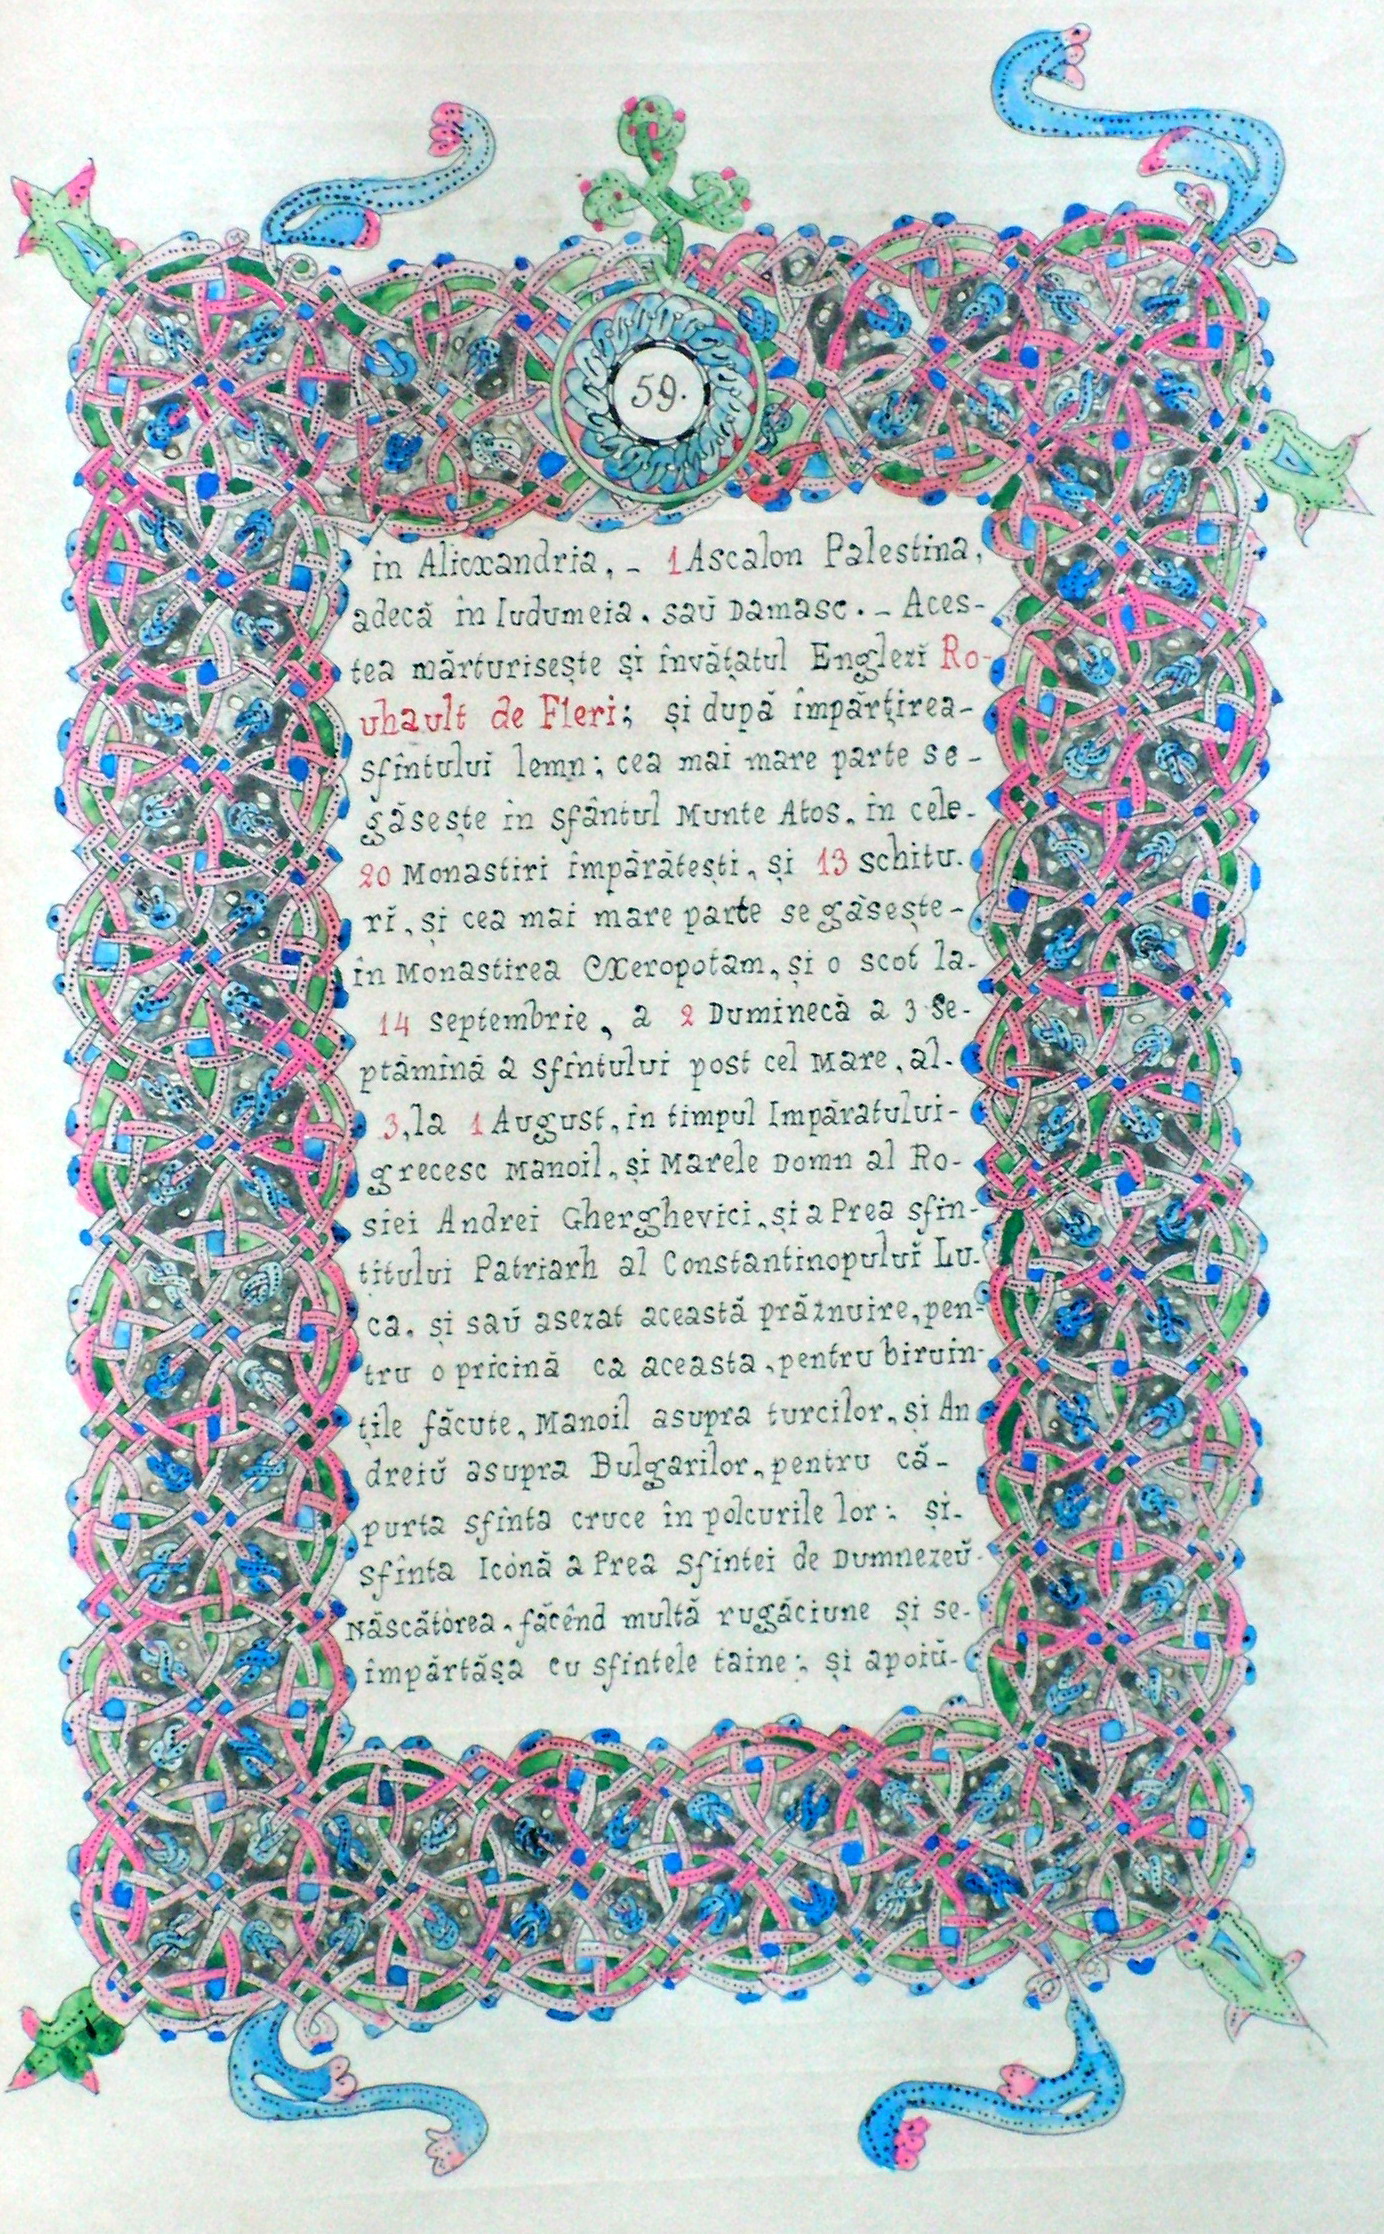 59.
în Alicxandria, – 1 Ascalon Palestina,
adecă în Iudumeia, saŭ Damasc. – Aces-
tea mărturisește și învățatul Englezĭ Ro-
uhault de Fleri; și după împărțirea-
sfîntuluĭ lemn; cea mai mare parte se-
găsește în sfântul Munte Atos, în cele-
20 Monastiri împărătești, și 13 schitu-
rĭ, și cea mai mare parte se găsește-
în Monastirea Cxeropotam, și o scot la-
14 septembrie, a 2 Duminecă a 3 Se-
ptămînă a sfîntului post cel Mare, al-
3, la 1 August, în timpul Impăratului-
grecesc Manoil, și Marele Domn al Ro-
siei Andrei Gherghevici, și a Prea sfin-
țitului Patriarh al Constantinopuluĭ Lu-
ca, și saŭ asezat această prăznuire, pen-
tru o pricină ca aceasta, pentru biruin-
țile făcute, Manoil asupra turcilor, și An
dreiŭ asupra Bulgarilor, pentru că-
purta sfînta cruce în polcurile lor; și-
sfînta Icónă a Prea Sfintei de Dumnezeŭ-
Născătórea, făcênd multă rugăciune și se-
împărtășa cu sfintele taine; și apoiŭ-